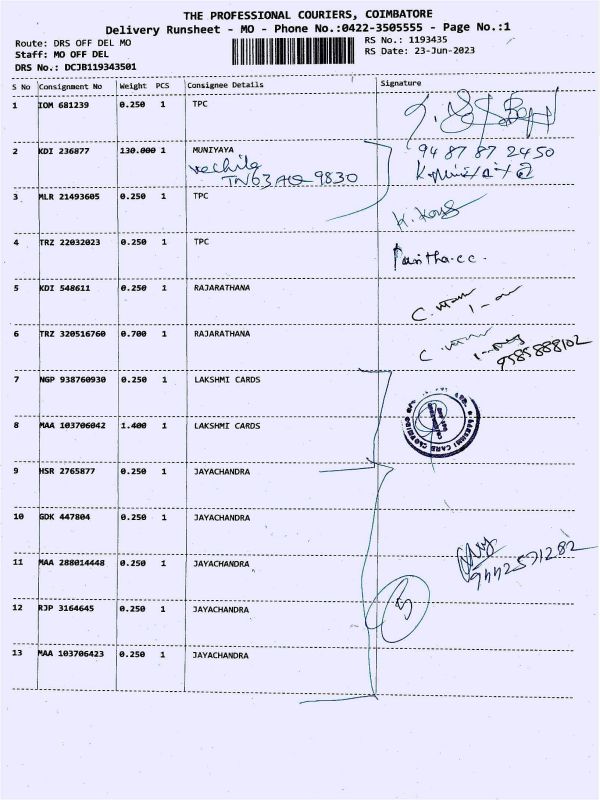 THE PROFESSIONAL COURIERS, COIMBATORE
Delivery Runsheet - MO - Phone No.:0422-3505555 - Page No.:1
Route: DRS OFF DEL MO
Staff: MO OFF DEL
DRS No.: DCJB119343501
RS No.: 1193435
RS Date: 23-Jun-2023
S No Consignment No Weight PCS Consignee Details Signature
1 IOM 681239 0.250 1 TPC
2 KDI 236877 130.000 1 MUNIYAYA 94 87 87 2450
vechile
TN63AQ 9830
3 MLR 21493605 0.250 1 TPC
4 TRZ 22032023 0.250 1 TPC
5 KDI 548611 0.250 1 RAJARATHANA
6 TRZ 320516760 0.700 1 RAJARATHANA
9585888102
7 NGP 938760930 0.250 1 LAKSHMI CARDS
8 MAA 103706042 1.400 1 LAKSHMI CARDS
9 HSR 2765877 0.250 1 JAYACHANDRA
10 GDK 447804 0.250 1 JAYACHANDRA
11 MAA 288014448 0.250 1 JAYACHANDRA
9442571282
12 RJP 3164645 0.250 1 JAYACHANDRA
13 MAA 103706423 0.250 1 JAYACHANDRA